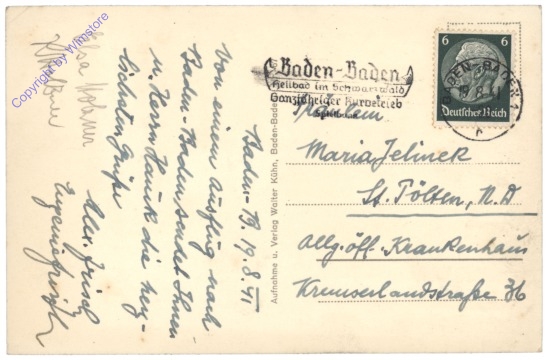 Copyright by Wimstore
Baden-B. 19.8.41
Von einem Ausflug nach
Baden-Baden sendet Ihnen
u. Herrn Hauck die herz-
lichsten Grüße
Alex.
Elsa
Aufnahme u. Verlag Walter Kühn, Baden-Baden
Baden-Baden
Heilbad im Schwarzwald
Ganzjähriger Kurbetrieb
Spielbank
6 6
Deutsches Reich
BADEN-BADEN
Maria Jelinek
St. Pölten, N.D
Allg. öff. Krankenhaus
Kremserlandstraße 36